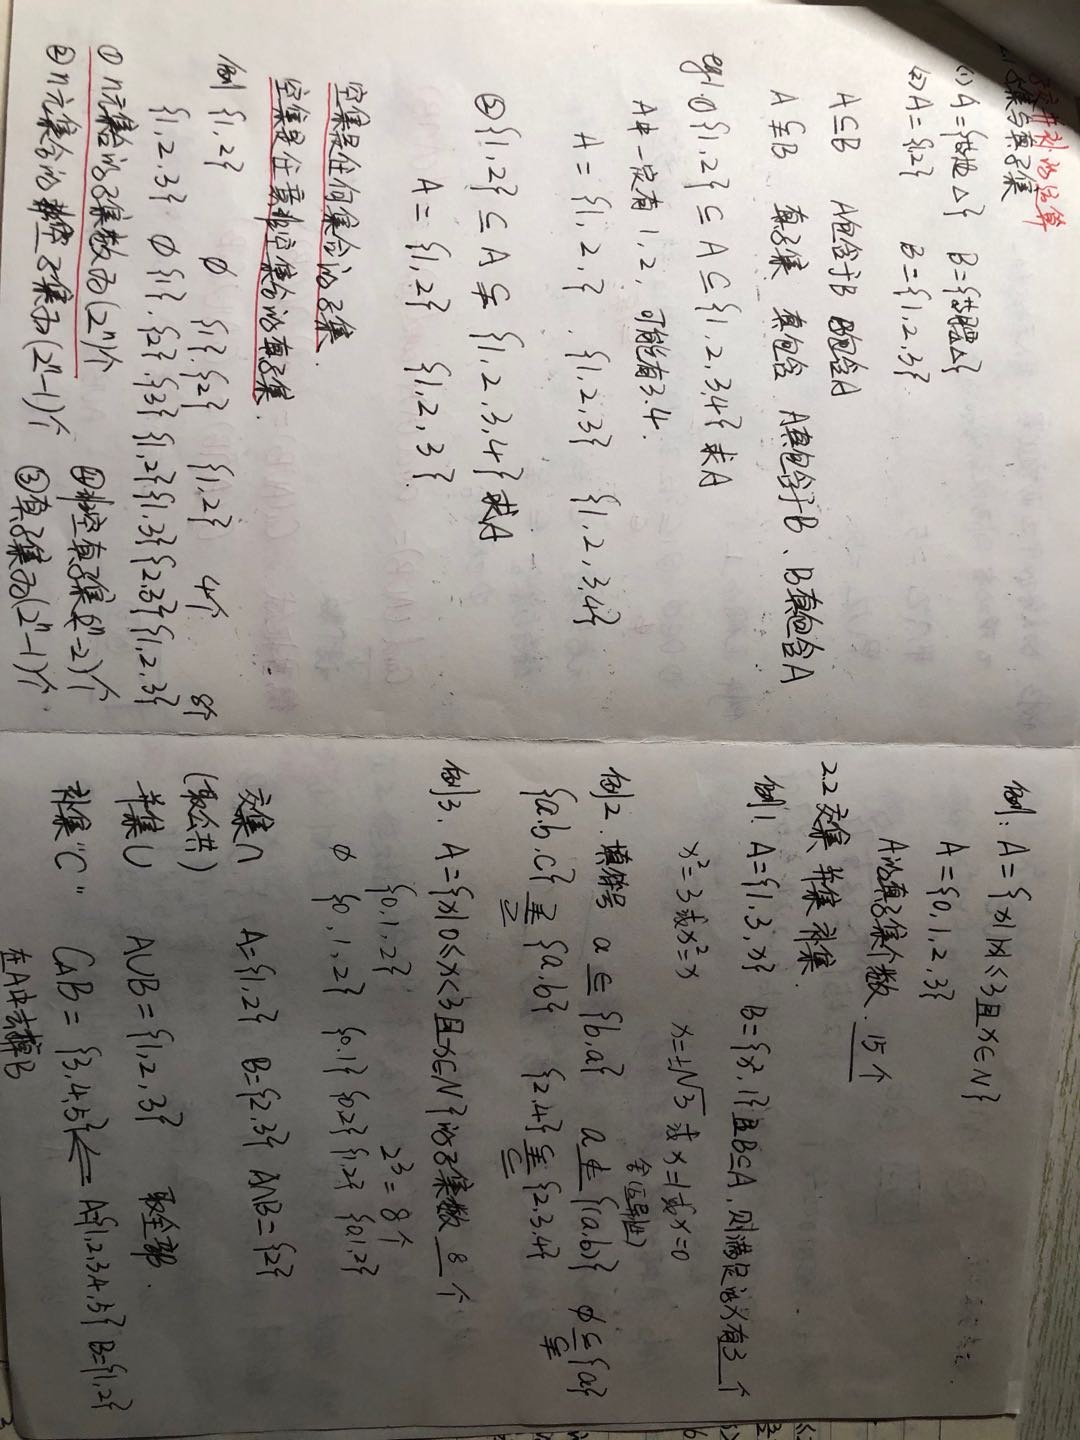 子交并补的运算
2.1 子集与真子集
(1) A={等边△} B={等腰△}
(2) A={1,2} B={1,2,3}
A⊆B A包含于B B包含A
A⫋B 真子集 真包含 A真包含于B、B真包含A
eg1.①{1,2}⊆A⊆{1,2,3,4}求A
A中一定有1,2,可能有3.4.
A={1,2,} . {1,2,3} {1,2,3,4}
②{1,2}⊆A⫋{1,2,3,4}求A
A={1,2} {1,2,3}
空集是任何集合的子集.
空集是任意非空集合的真子集.
例 {1,2} ∅ {1}.{2} {1,2} 4个
{1,2,3} ∅ {1}.{2}.{3}{1,2}{1,3}{2,3}{1,2,3} 8个
①n元集合的子集数为(2ⁿ)个 ④非空真子集(2ⁿ-2)个
②n元集合的非空子集为(2ⁿ-1)个 ③真子集为(2ⁿ-1)个.
例:A={x||x|≤3且x∈N}
A={0,1,2,3}
A的真子集个数.15个
2.2 交集 并集 补集.
例1.A={1,3,x} B={x²,1}且B⊆A,则满足的x有3个
x²=3或x²=x x=±√3或x=1或x=0
舍(互异性)
例2.填符号 a∈{b,a} a∉{(a,b)} ∅⊆{a}
⫋
{a,b,c}⫌{a,b} {2,4}⫋{2,3,4}
⊇ ⊆
例3.A={x|0≤x<3且x∈N}的子集数8个
{0,1,2} 2³=8个
∅ {0,1,2} {0.1} {0.2} {1.2} {0,1,2}
交集∩ A={1,2} B={2,3} A∩B={2}
(取公共)
并集∪ A∪B={1,2,3} 取全部.
补集“C” C_AB={3,4,5}⇐A={1,2,3,4,5} B={1,2}
在A中去掉B